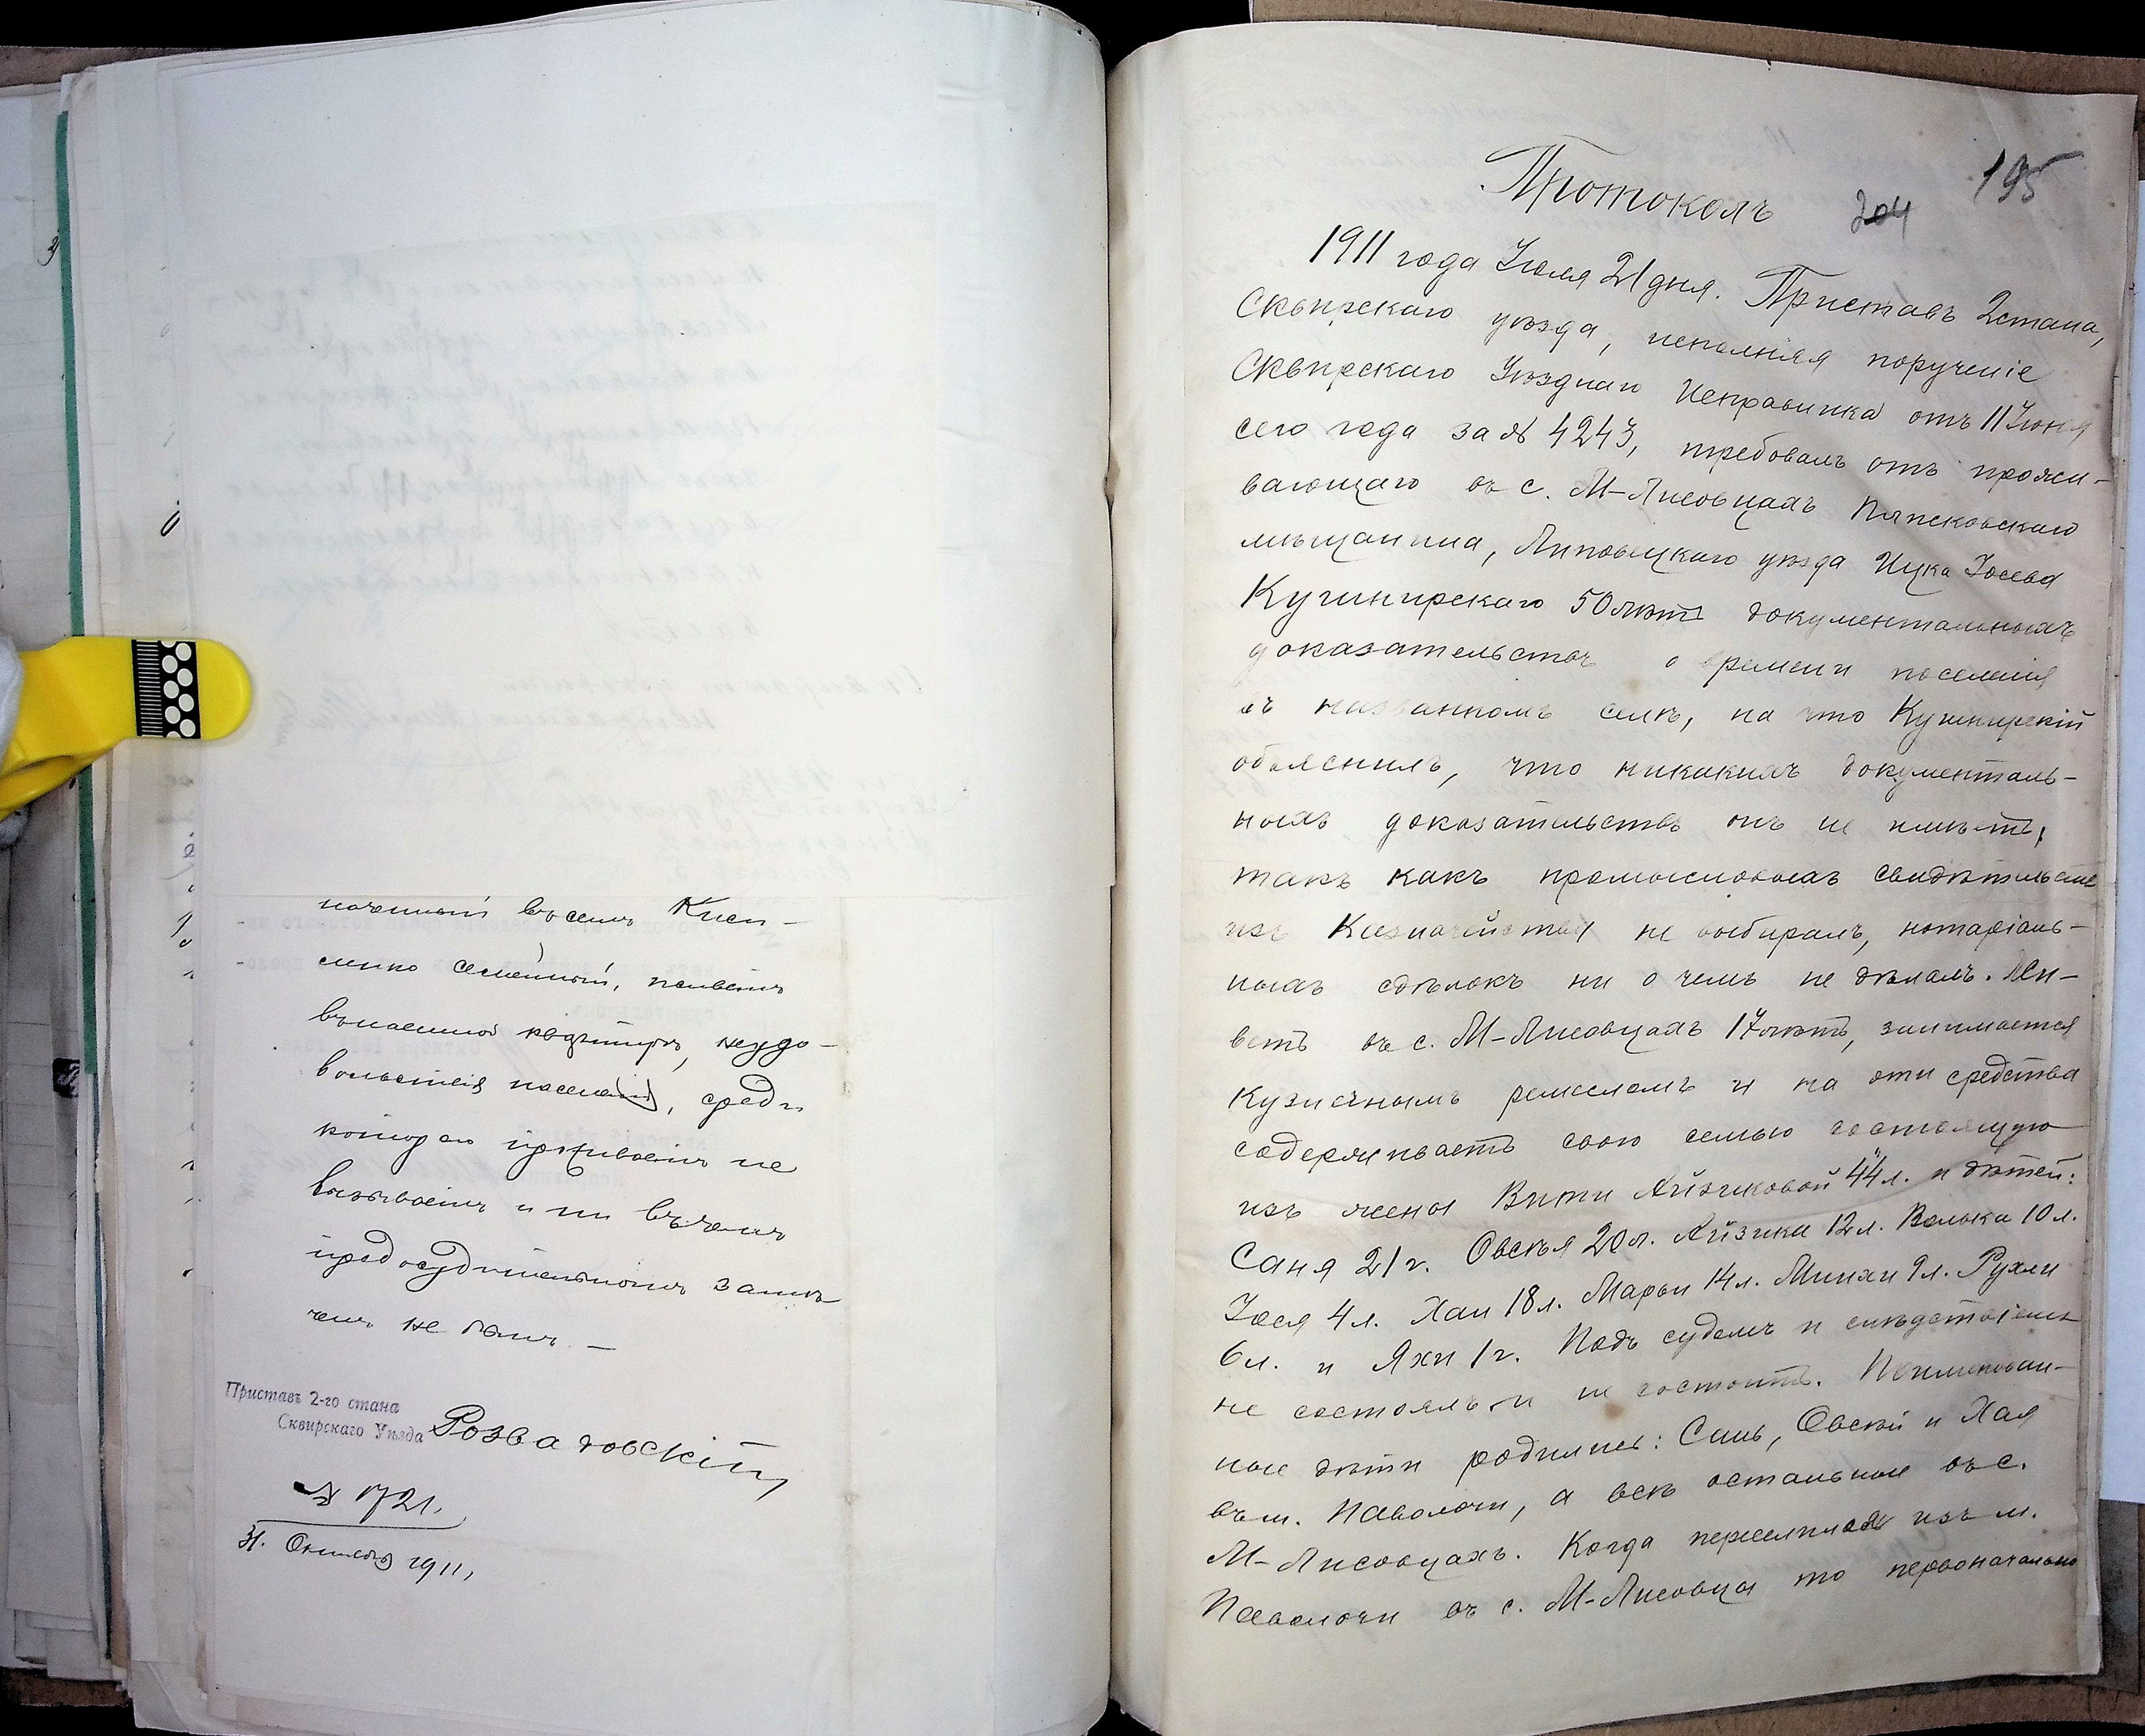 наченный въ семъ
семейный, живетъ
въ наемной квартире, неудо-
вольствія населенія, среди
котораго проживаетъ не
вызываетъ и ни въ чемъ
предосудительномъ замѣ
ченъ не былъ. —
Приставъ 2-го стана
Сквирскаго Уѣзда Розвадовскій
№ 1721.
31. Октября 1911,
195
Протоколъ 204
1911 года Іюля 21 дня. Приставъ 2 стана,
Сквирскаго уѣзда, исполняя порученіе
Сквирскаго Уѣзднаго Исправника отъ 11 Іюня
сего года за № 4243, требовалъ отъ прожи-
вающаго въ с. М-Лисовцахъ Пятисковскаго
мѣщанина, Липовецкаго уѣзда Ицка Іосева
Кушнирскаго 50 лѣтъ документальныхъ
доказательствъ о времени поселенія
въ названномъ селѣ, на что Кушнирскій
объяснилъ, что никакихъ документаль-
ныхъ доказательствъ онъ не имѣетъ,
такъ какъ промысловыхъ свидѣтельствъ
изъ Казначейства не выбиралъ, нотаріаль-
ныхъ сдѣлокъ ни о чемъ не дѣлалъ. Жи-
ветъ въ с. М-Лисовцахъ 17 лѣтъ, занимается
Кузнечнымъ ремесломъ и на эти средства
содерживаетъ свою семью состоящую
изъ жены Витти Айзиковой 44 л. и дѣтей:
Саня 21 г. Овсѣя 20 л. Айзика 12 л. Волька 10 л.
Іося 4 л. Хаи 18 л. Марьи 14 л. Минхи 9 л. Рухли
6 л. и Яхи 1 г. Подъ судомъ и слѣдствіемъ
не состоялъ и не состоитъ. Поименован-
ные дѣти родились: Сань, Овсѣй и Хая
въ м. Паволочи, а всѣ остальные въ с.
М-Лисовцахъ. Когда переселился изъ м.
Паволочи въ с. М-Лисовцы то первоначально